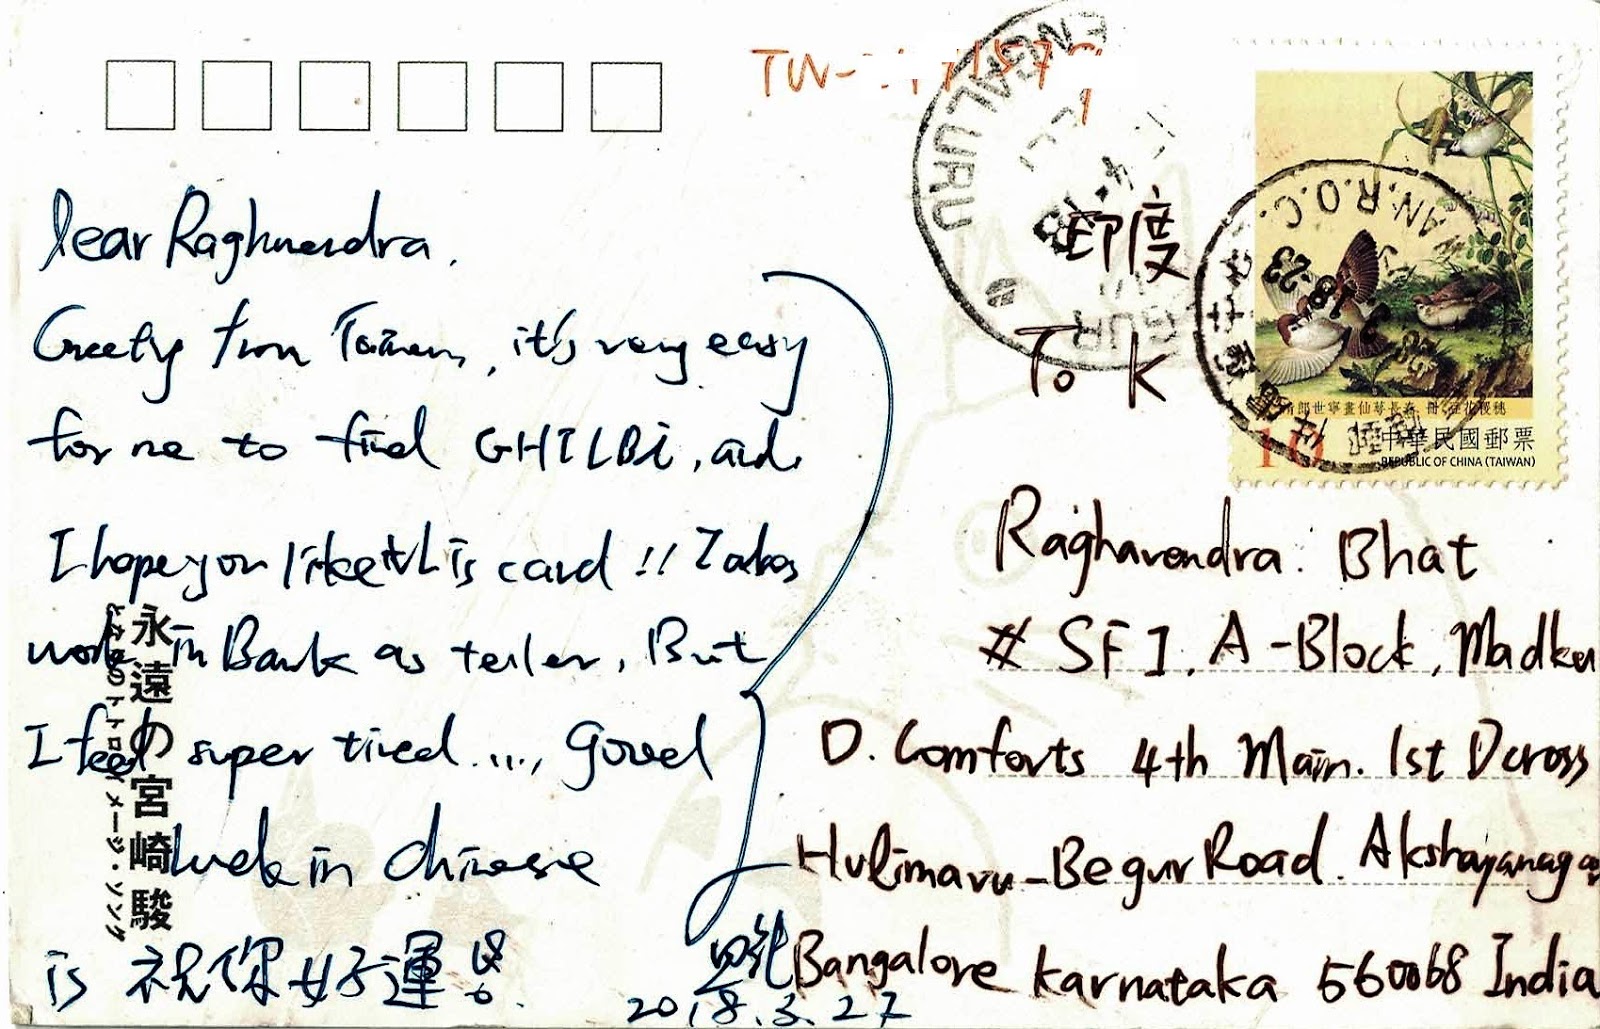 TW-
dear Raghuendra.
Greeting from Taiwan, it's very easy
for me to find GHILBi, and
I hope you like this card !! I also
work in Bank as teller, But
I feel super tired...., Good
luck in Chinese
is 祝你好運
2018.3.27
永遠の宮崎駿
となりのトトロ イメージ・ソング
印度
To K
Raghavendra. Bhat
# SF1, A-Block, Madku
D. Comforts 4th Main. 1st Dcross
Hulimavu-Begur Road. Akshayanagar
Bangalore Karnataka 560068 India
NGALURU
AN.R.O.C.
10
中華民國郵票
REPUBLIC OF CHINA (TAIWAN)